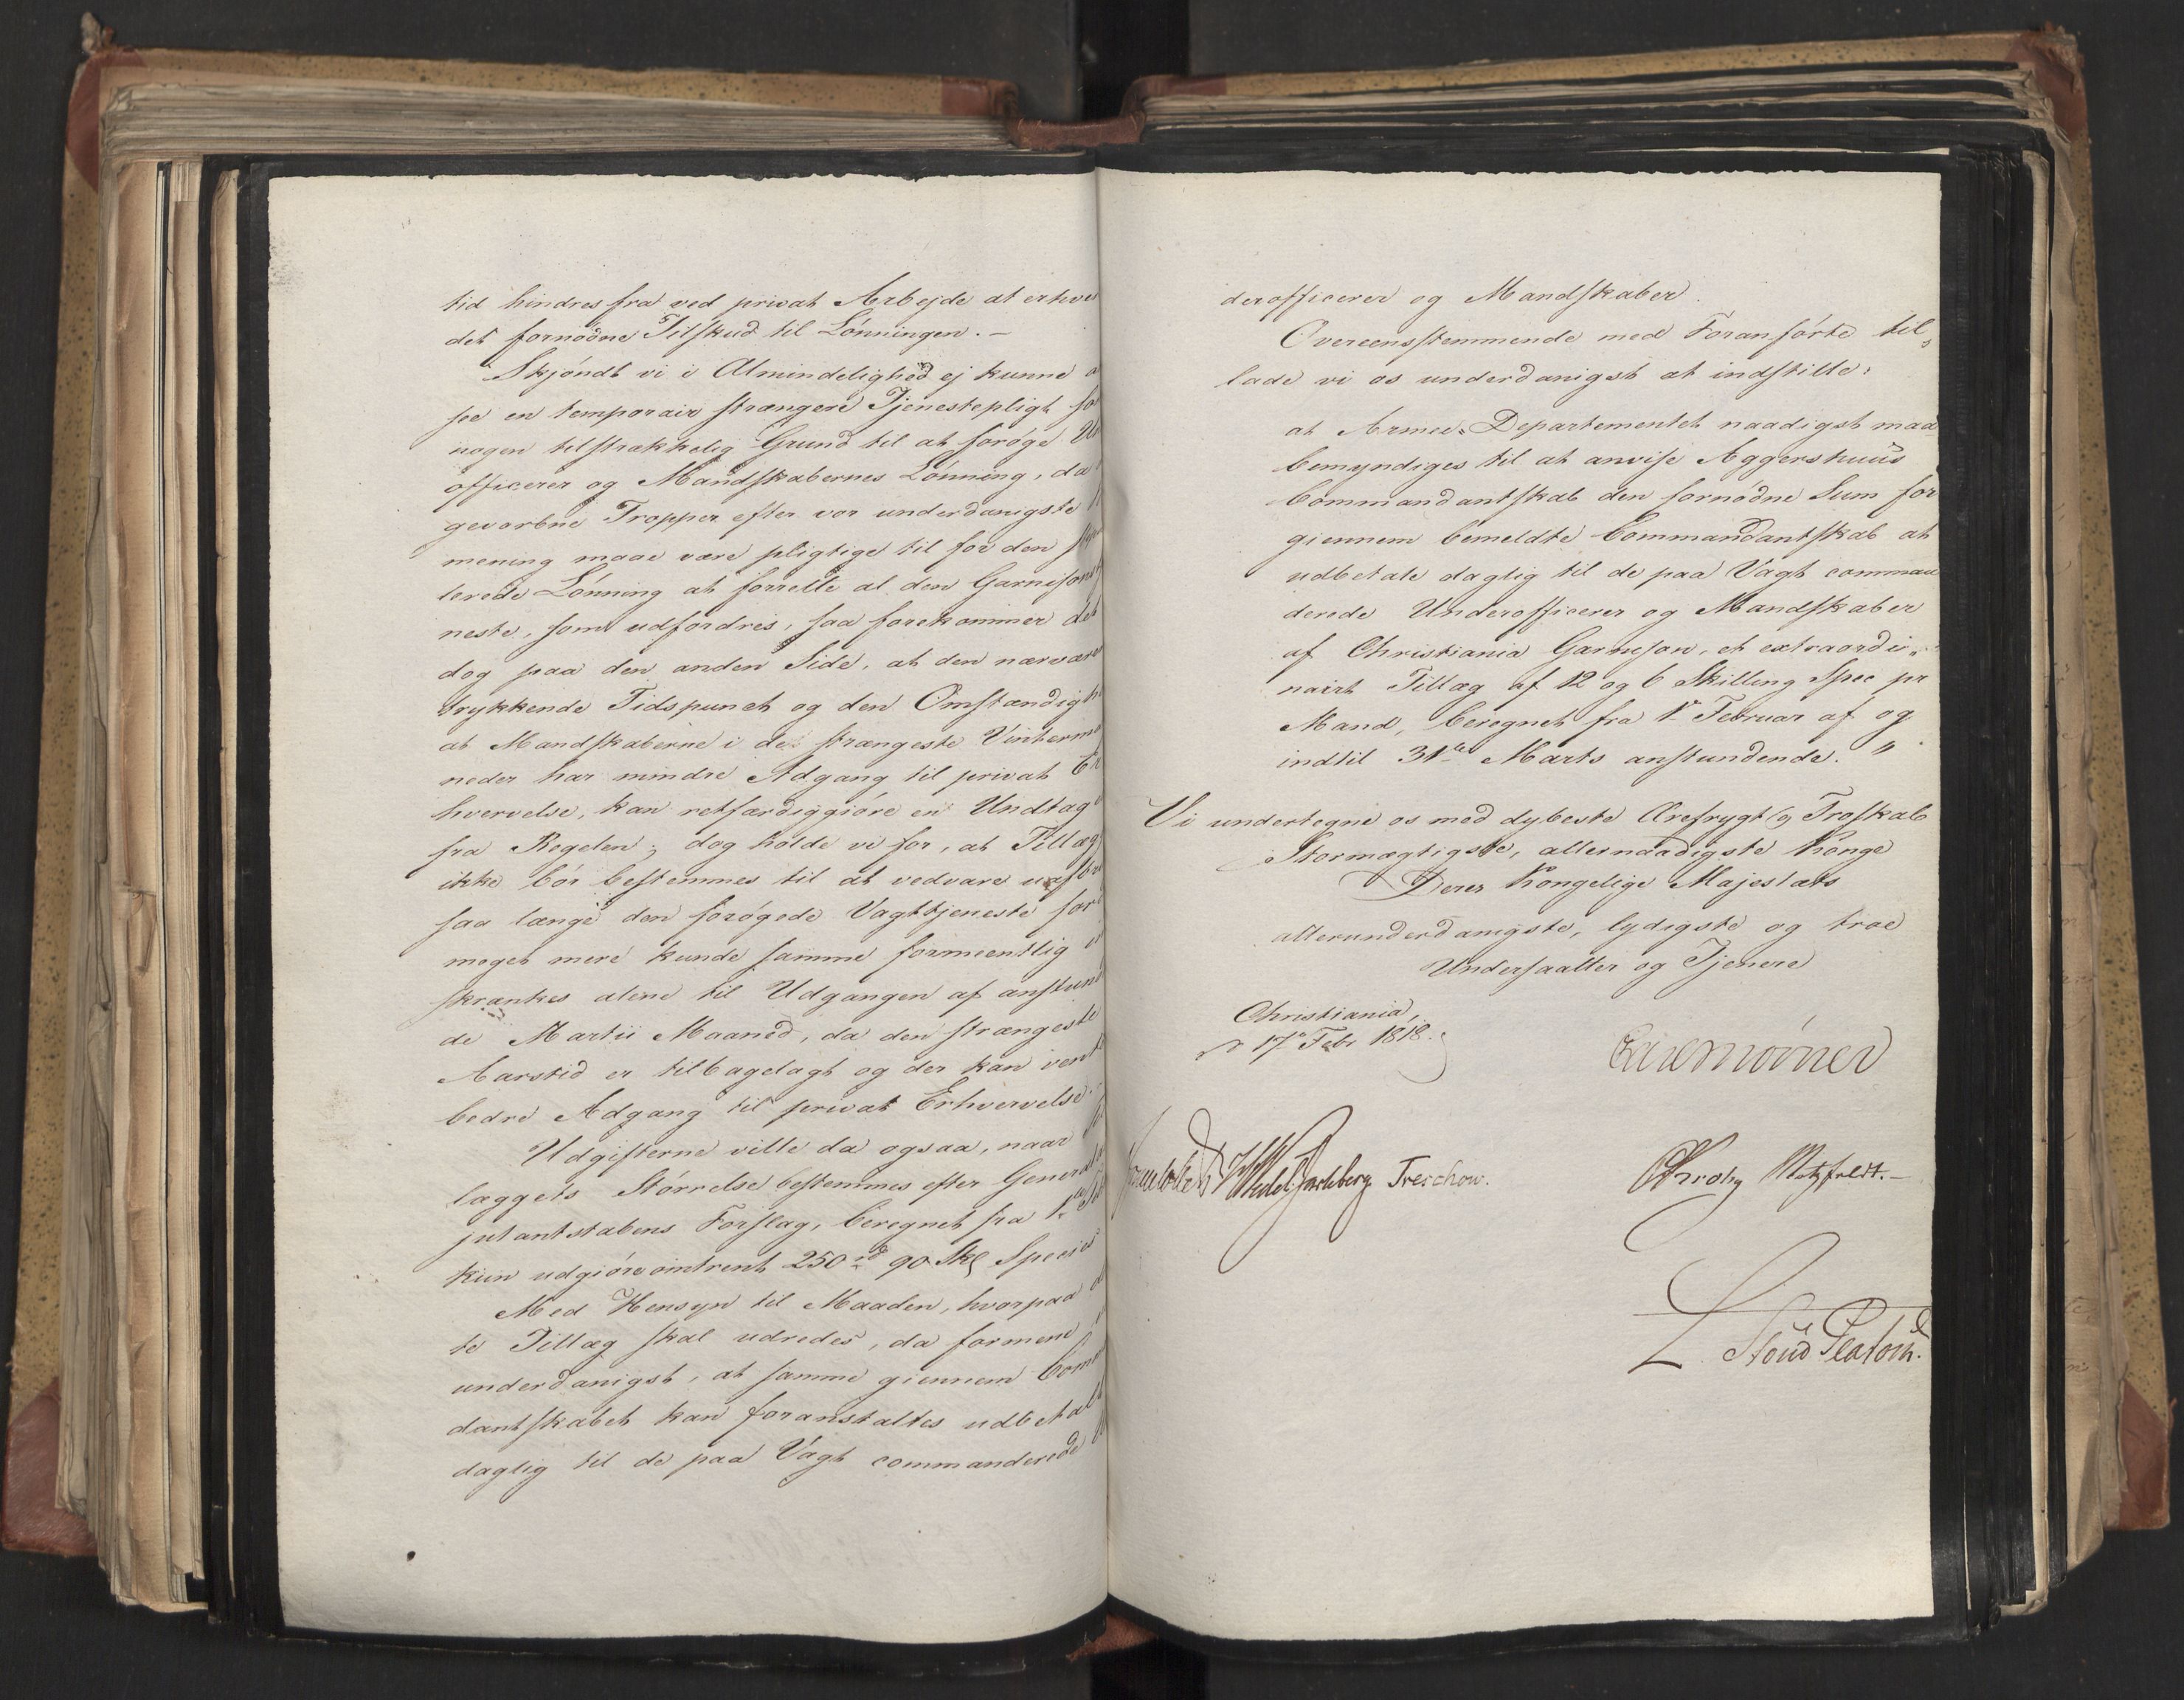 tid hindres fra ved privat Arbejde at erhver
det fornødne Tilskud til Lønningen. –
Skjøndt vi i Almindelighed ej kunne a
see en temporair strængere Tjenestepligt for
nogen tilstrækkelig Grund til at forøge Un
officerer og Mandskabernes Lønning, da
gevorbne Tropper efter vor underdanigste
mening maae være pligtige til for den
lerede Lønning at forrette al den Garnisons
neste, som udfordres, saa forekommer det
dog paa den anden Side, at den nærvære
trykkende Tidspunct og den Omstændigh
at Mandskaberne i de strængeste Vinterm
neder har mindre Adgang til privat Er
hvervelse, kan retfærdiggjøre en Undtag
fra Regelen; dog holde vi for, at Tillæg
ikke bør bestemmes til at vedvare uafbr
saa længe den forøgede Vagttjeneste for
meget mere kunde samme formeentlig
skrænkes alene til Udgangen af anstund
de Martii Maaned, da den strængeste
Aarstid er tilbagelagt og der kan vent
bedre Adgang til privat Erhvervelse.
Udgifterne ville da ogsaa, naar
læggets Størrelse bestemmes efter General
jutantstabens Forslag, beregnet fra 1
kun udgjøre omtrent 250 rd 90 Sk Species
Med Hensyn til Maaden, hvorpaa
te Tillæg skal udredes, da formene
underdanigst, at samme giennem Comm
dantskabet kan foranstaltes udbetalt
daglig til de paa Vagt commanderede
derofficerer og Mandskaber.
Overeensstemmende med Foranførte til„
lade vi os underdanigst at indstille:
at Armee-Departementet naadigst maa
bemyndiges til at anvise Aggershuus
Commandantskab den fornødne Sum for
giennem bemeldte Commandantskab at
udbetale daglig til de paa Vagt comman
derede Underofficerer og Mandskaber
af Christiania Garnison, et extraordi„
nairt Tillæg af 12 og 6 Skilling Spec pr
Mand, beregnet fra 1ste Februar af og
indtil 31te Marts anstundende. "
Vi undertegne os med dybeste Ærefrygt og Troskab
Stormægtigste, allernaadigste Konge
Deres Kongelige Majestæts
allerunderdanigste, lydigste og troe
Undersaatter og Tjenere
Christiania,
d 17 Febr 1818.
CCarl Mörner
Sommerhielm Wedel Jarlsberg Treschow.
CKrohg Motzfeldt. –
L Stoud Platou.